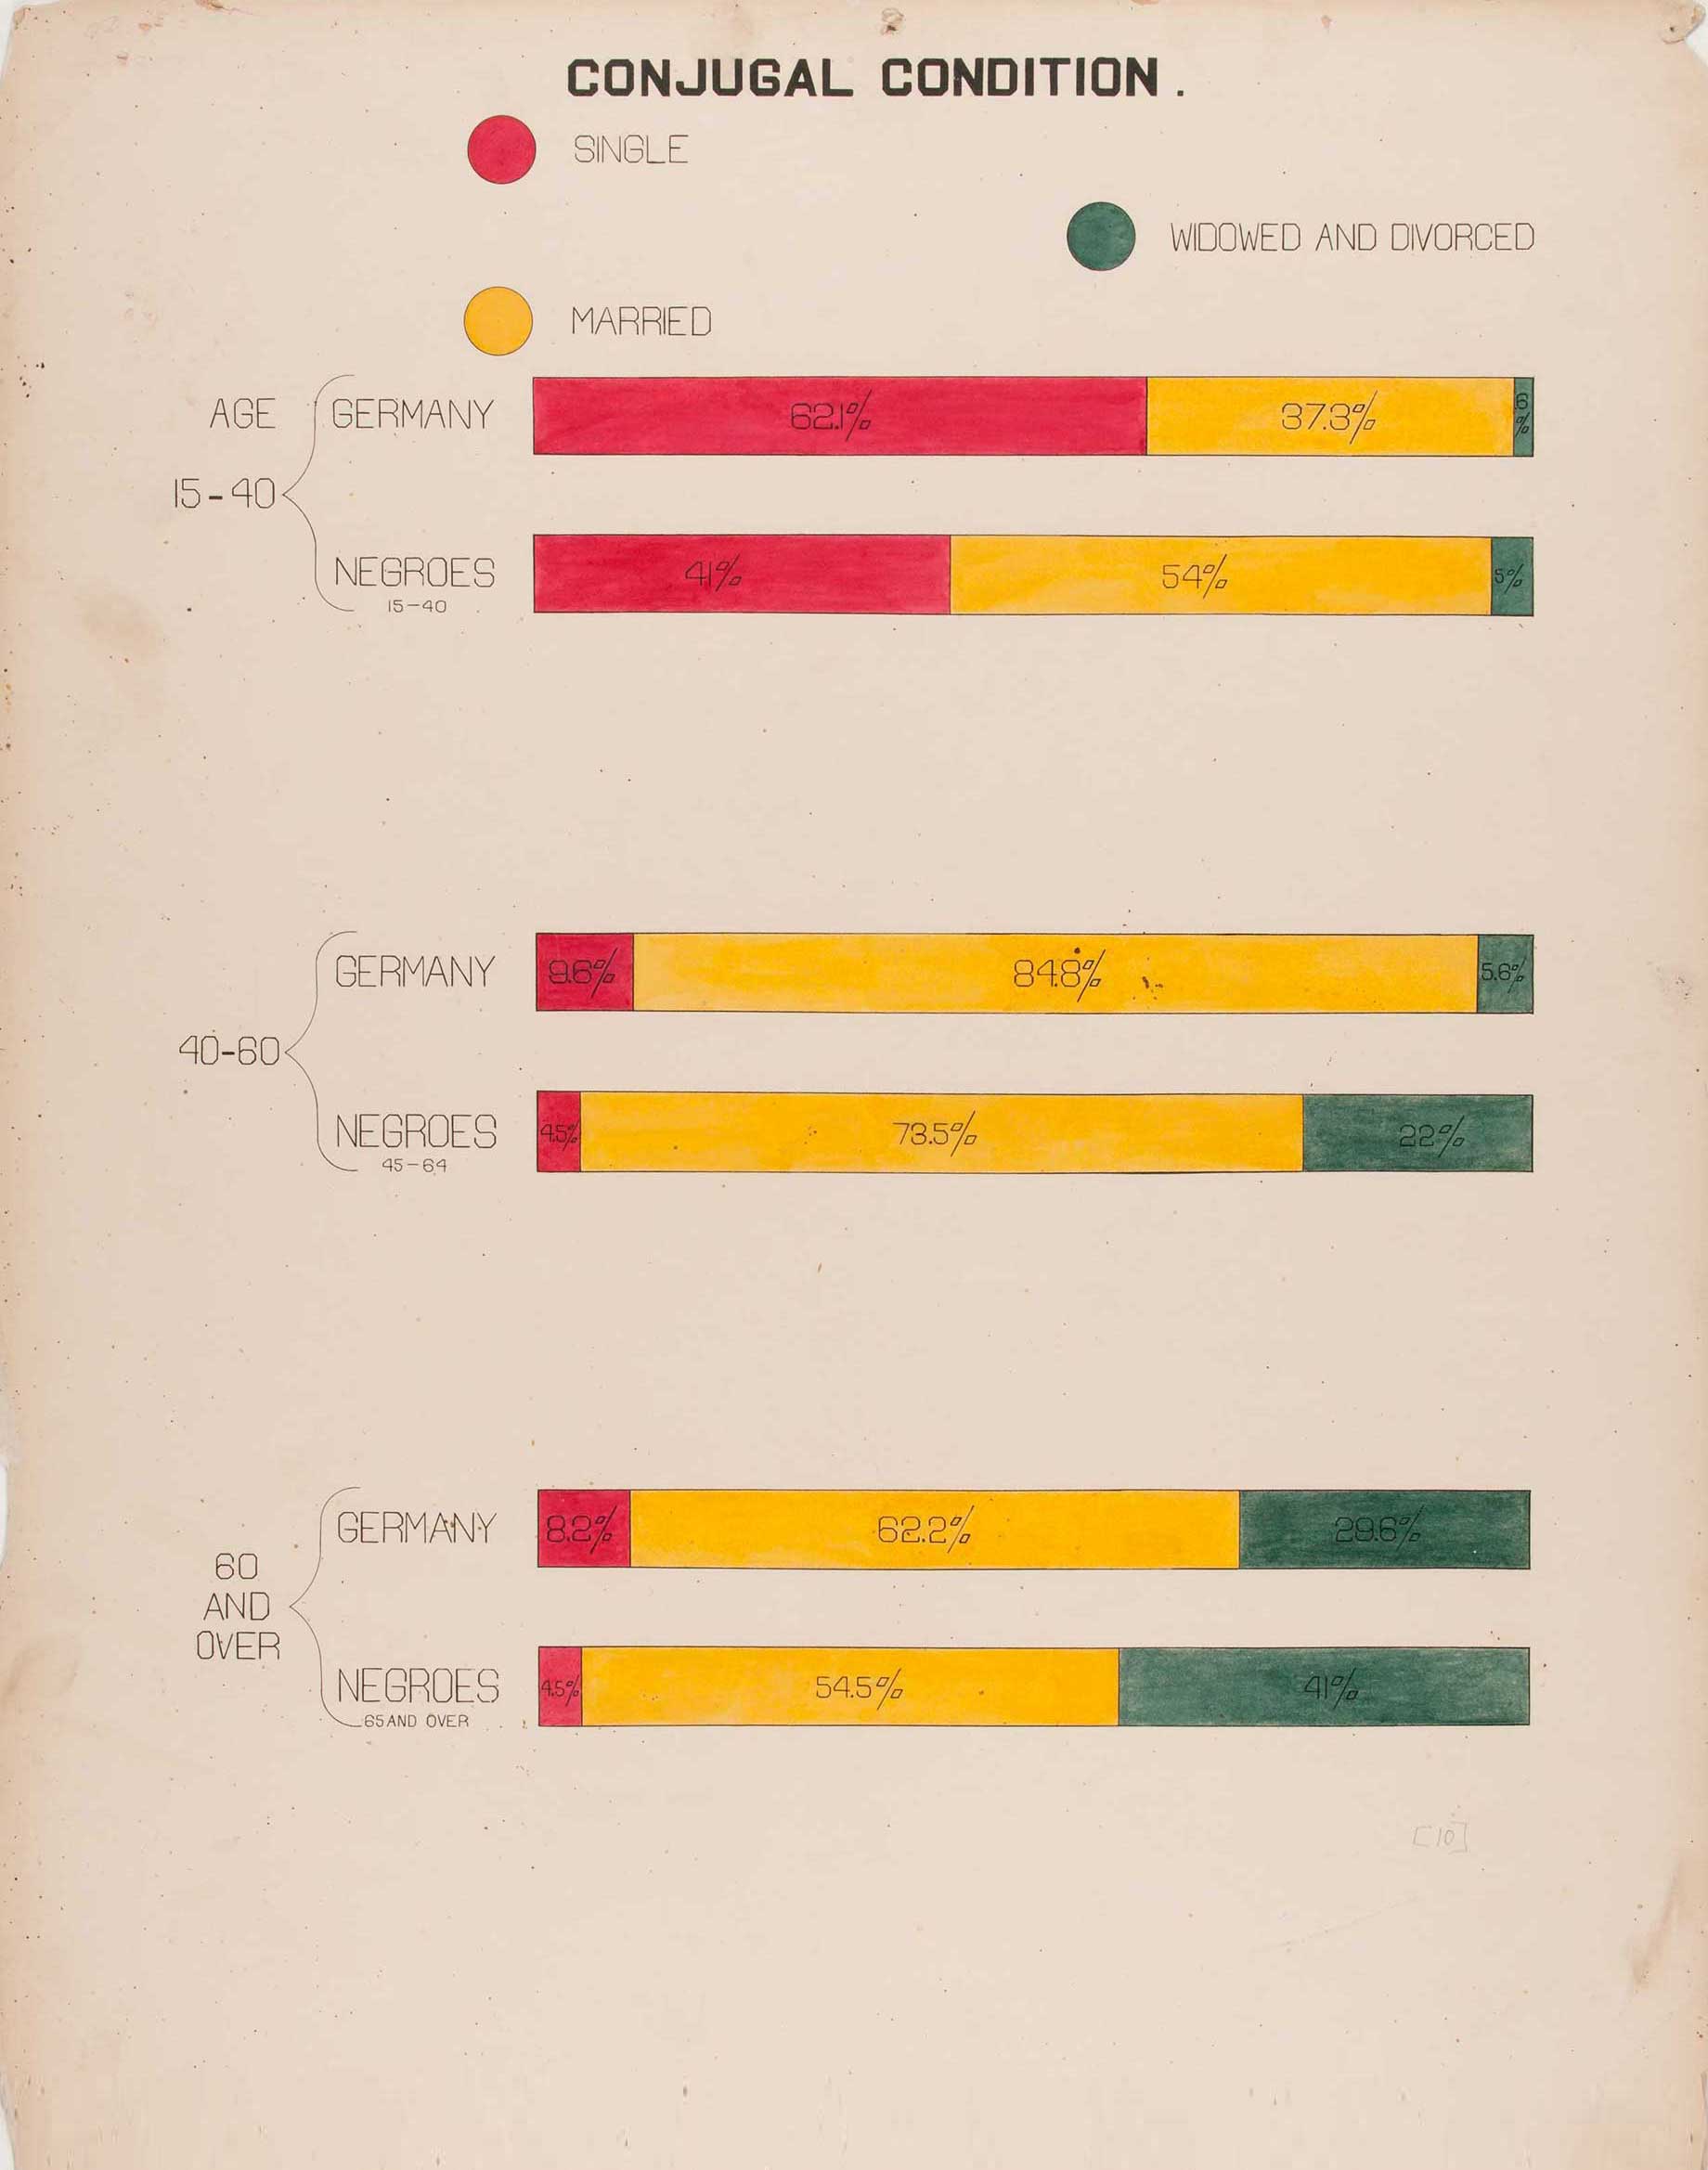 CONJUGAL CONDITION.
SINGLE
WIDOWED AND DIVORCED
MARRIED
AGE
15-40
GERMANY
62.1%
37.3%
.6%
NEGROES
15-40
41%
54%
5%
40-60
GERMANY
9.6%
84.8%
5.6%
NEGROES
45-64
4.5%
73.5%
22%
60
AND
OVER
GERMANY
8.2%
62.2%
29.6%
NEGROES
65 AND OVER
4.5%
54.5%
41%
[10]